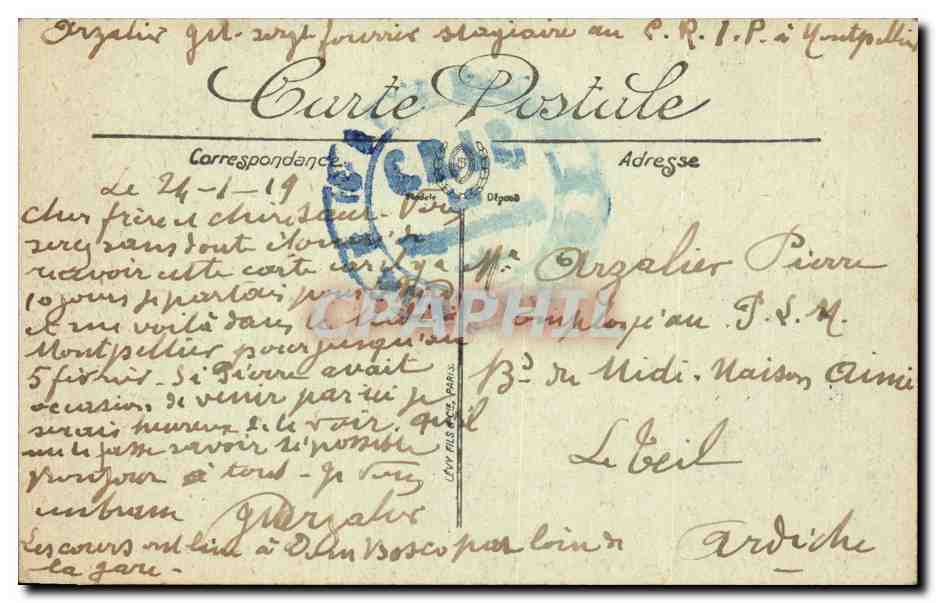 Arzalier sergt fourrier stagiaire au C.R.I.P. à Montpellier
Carte Postale
Correspondance
Adresse
CRIP
Modèle Déposé
Le 24-1-19
Cher frère et chère Sœur. Vous
serez sans dout étonné de
recevoir cette carte car il y a
10 jours je partais pour
et me voilà dans le
Montpellier pour jusqu'au
5 février. Si Pierre avait
occasion de venir par ici je
serais heureux de le voir. qu'il
me le fasse savoir si possible
Bonjour à tous. Je vous
embrasse Arzalier
Les cours ont lieu à Dom Bosco pas loin de
la gare.
Mr Arzalier Pierre
Employé au P.L.M.
Bd du Midi. Maison Aimé
Le Teil
Ardèche
LÉVY FILS & Cie, PARIS.
CPAPHIL